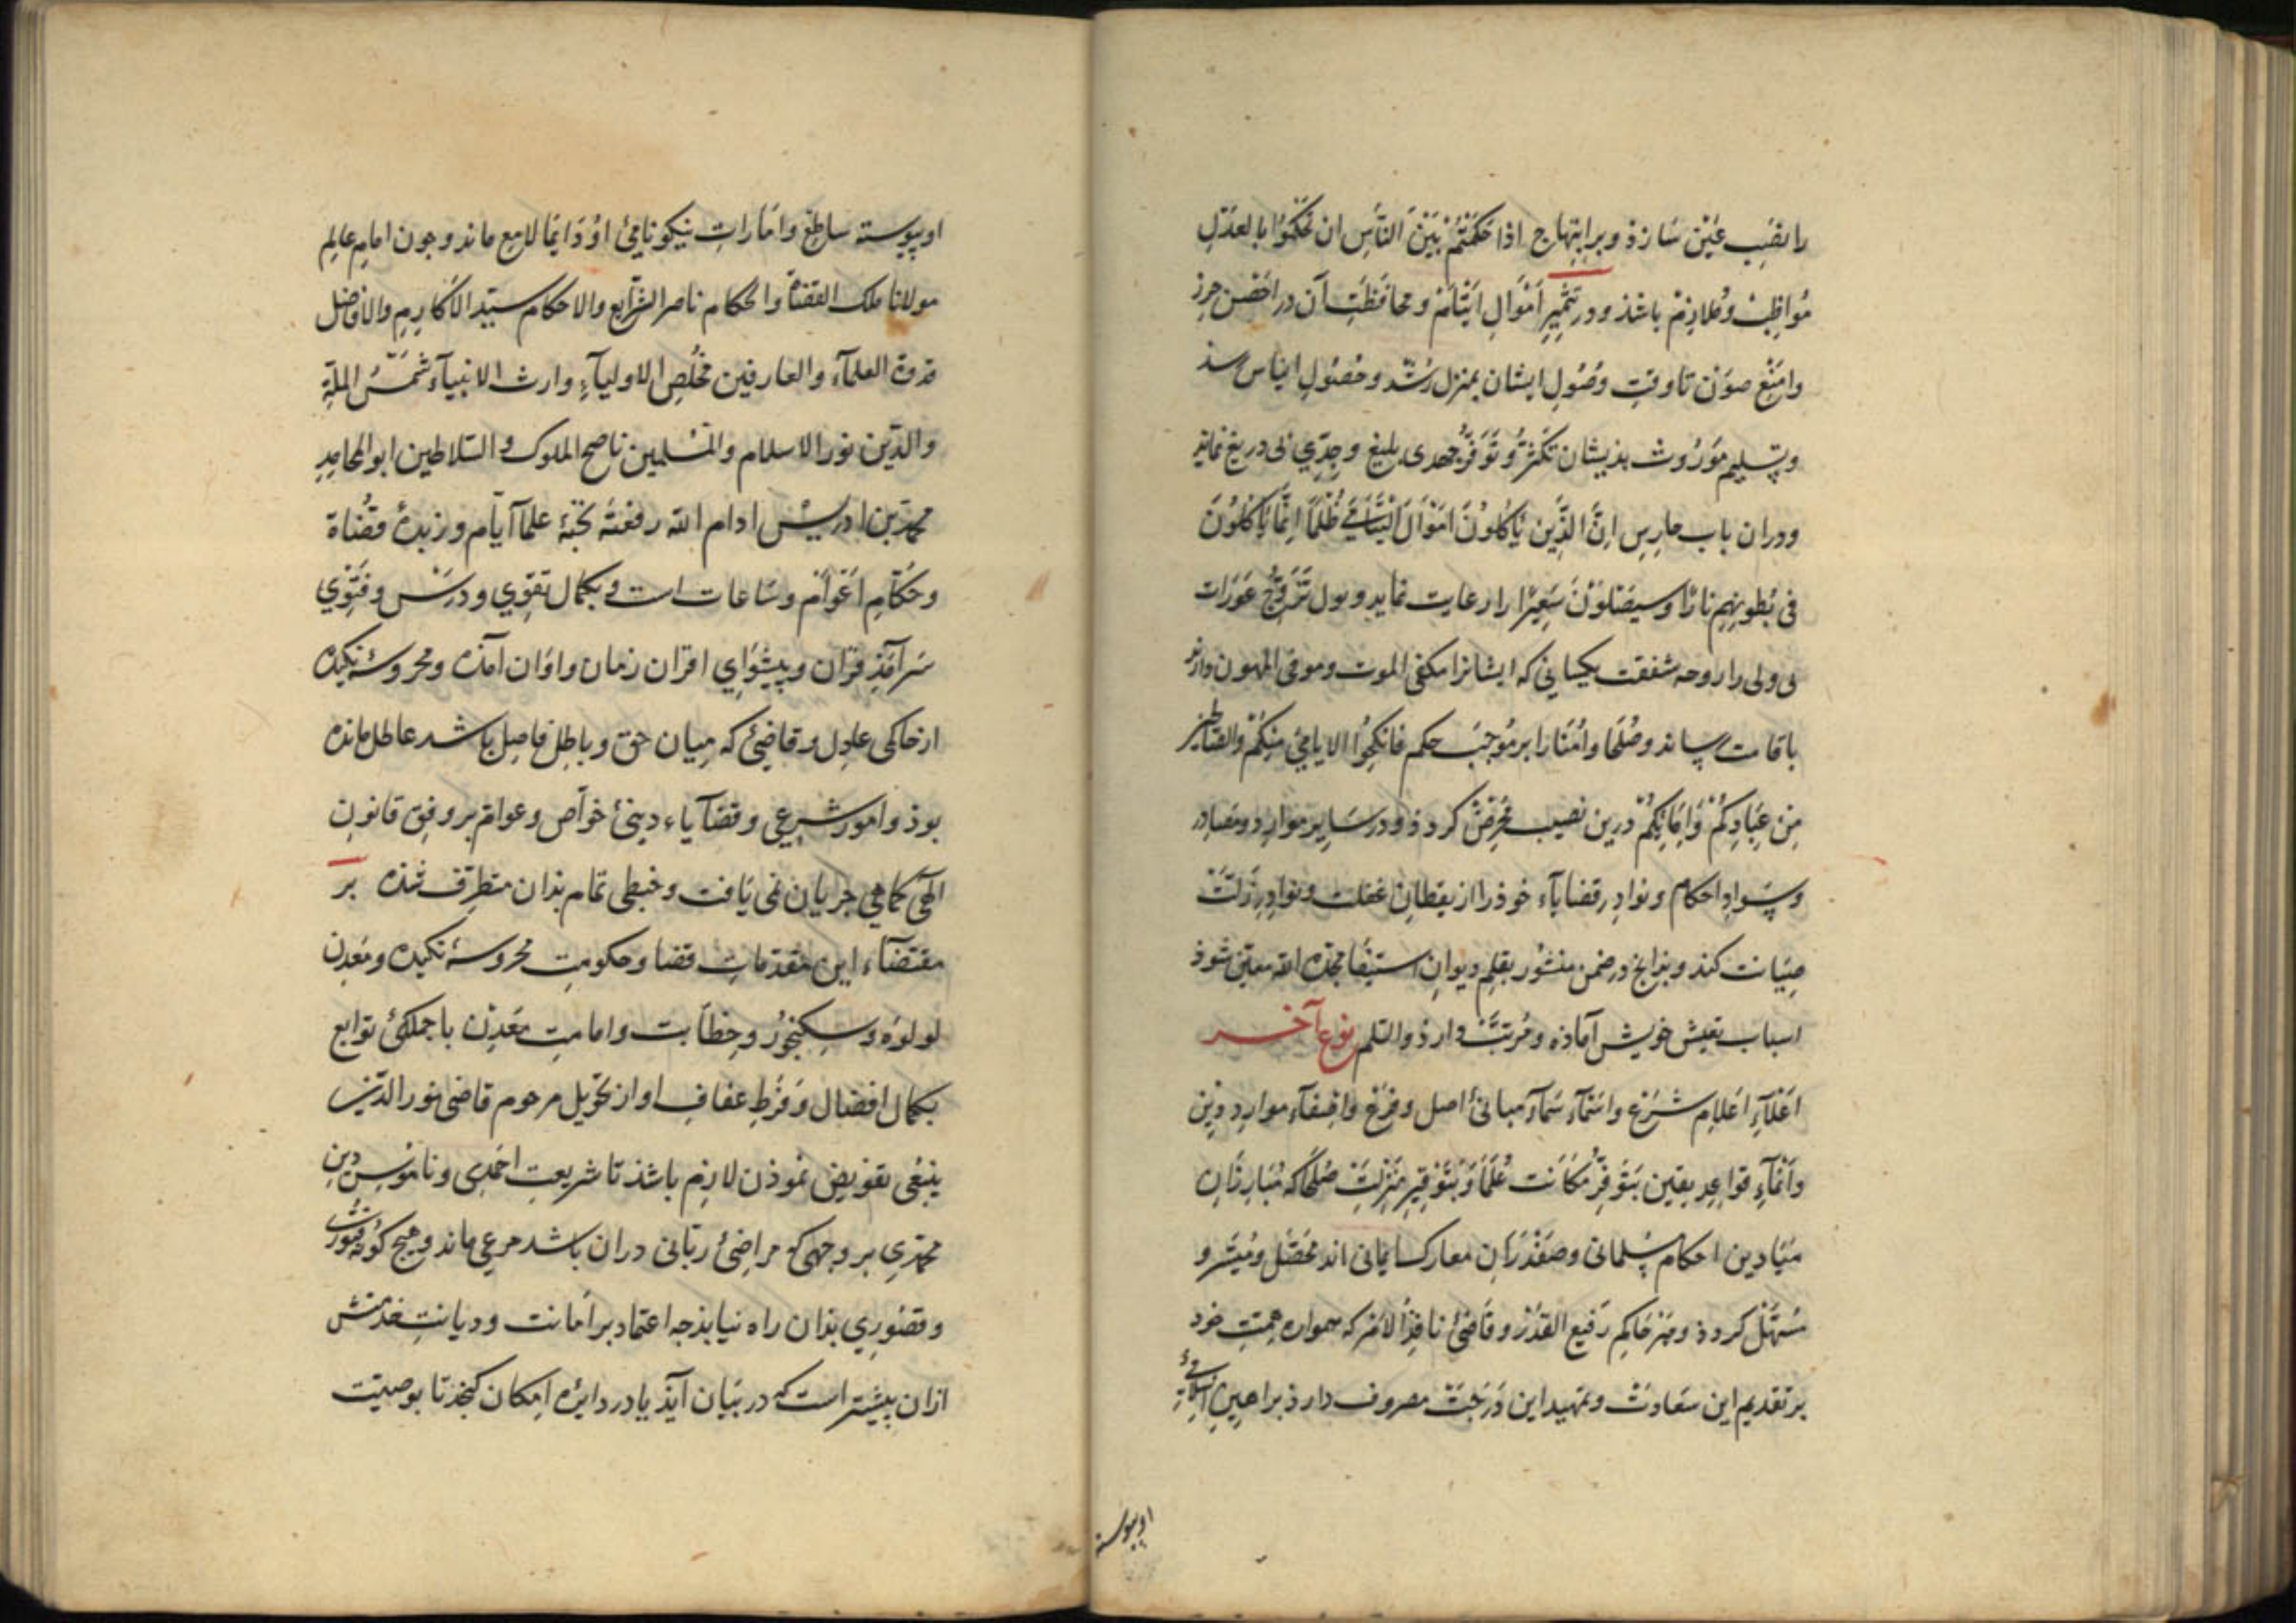 را نصب عین سازذ و بر ابتهاج اذا حکمتم بین الناس ان تحکموا بالعدل
مواظب و ملازم باشذ و در تثمیر اموال ایتام و محافظت آن در احصن حرز
وامنع صون تا وقت وصول ایشان بمنزل رشد و حصول ایناس سد
و تسلیم موروث بذیشان تکثر و توفر جهدی بلیغ و جدی بی دریغ نماید
و دران باب حارس انّ الذین یاکلون اموال الیتامی ظلما انما یاکلون
فی بطونهم نارا و سیصلون سعیرا را رعایت نماید و تزوج عورات
بی ولی را شفقت که ایشانرا مکفی الموت و موفی المهون دارند
رساند و صلحا و امنا را بر موجب حکم فانکحوا الایامی منکم والصالحین
من عبادکم و امائکم درین نصیب محرض کردذ و در سایر موارد و مصادر
و سواد احکام و نوادر قضایاء خوذ را از یقطان غفلت و نوادر زلت
صیانت کند و بذانج در ضمن منشور بقلم دیوان استیفا مجده الله معین شوذ
اسباب تعیش خویش آماذه و مرتب دارذ والسلم نوع آخر
اعلآء اعلام شرع و اسمآء سمآء مبانیٔ اصل و فرع و اقتفآء موارد دین
و انمآء قواعد یقین بتوفر مکانت علما و بتوقیر منزلت صلحا که مبارزان
میادین احکام مسلمانی و صفدران معارک ایمانی اند محصل و میسر و
مسهل کردذ و هر حاکم رفیع القدر و قاضیٔ نافذ الامر که همواره همت خود
بر تقدیم این سعادت و تمهید این درجت مصروف دارذ براهین اسلامیٔ
اوپیوسته
اوپیوسته ساطع و امارات نیکو نامیٔ او دایما لامع ماند و جون امام عالم
مولانا ملک القضاة والحکام ناصر الشرایع والاحکام سید الاکارم والافاضل
قدوة العلمآء والعارفین مخلص الاولیآء وارث الانبیآء شمس الملة
والدین نور الاسلام والمسلمین ناصح الملوک والسلاطین ابو المحامد
محمد بن ادریس ادام الله رفعته نخبهٔ علمآ ایام و زبدهٔ قضاة
و حکام اعوام و ساعات است و بکمال تقوی و درس و فتوی
سرآمذ قران و پیشوای اقران زمان و اوان آمذه و محروسهٔ نکیده
از حاکی عادل و قاضیٔ که میان حق و باطل فاصل باشد عاطل مانده
بوذ و امور شرعی و قضآیاء دینیٔ خواص و عوام بر وفق قانون
الهی کماهی جریان نمی یافت و خبطی تمام بذان متطرف شذه بر
مقتضآء این مقدمات قضا و حکومت محروسهٔ نکیده و معدن
لولوه و سکنجور و خطابت و امامت معدن با جملکیٔ توابع
بکمال افضال و فرط عفاف او از تحویل مرحوم قاضی نور الدین
ینبغی تفویض نموذن لازم باشذ تا شریعت احمدی و ناموس دین
محمدی بر وجهی که مراضیٔ ربانی دران باشد مرعی ماند و هیچ کونه فتور
و قصوری بذان راه نیابذ جه اعتماد بر امانت و دیانت خدمتش
ازان پیشتر است که در بیان آیذ یا در دایره امکان کنجذ تا بوصیت